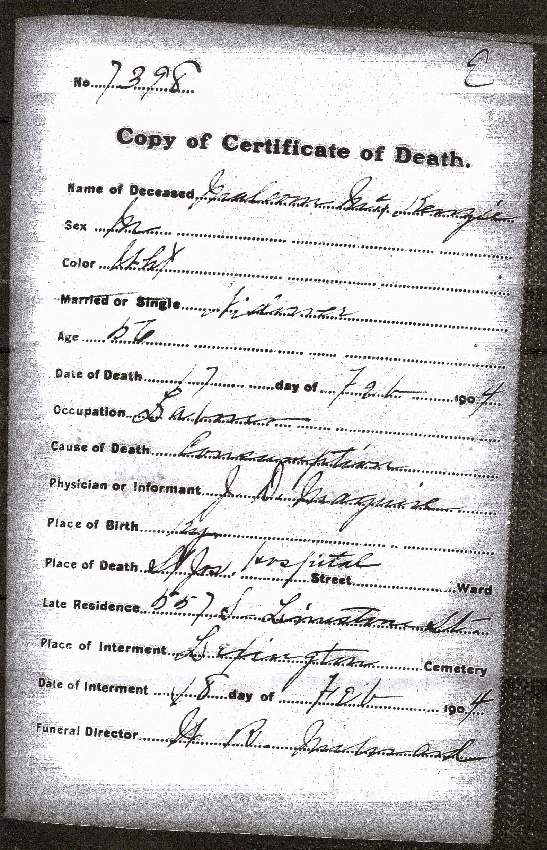 No. 7398
Copy of Certificate of Death.
Name of Deceased Malcom Mc Kenzie
Sex M
Color Wht
Married or Single Widower
Age 56
Date of Death 17 day of Feb 1904
Occupation Laborer
Cause of Death Consumption
Physician or Informant J D Maguire
Place of Birth Ky.
Place of Death St Jos. Hospital Street Ward
Late Residence 557 S Limestone St.
Place of Interment Lexington Cemetery
Date of Interment 18 day of Feb 1904
Funeral Director W R Milward